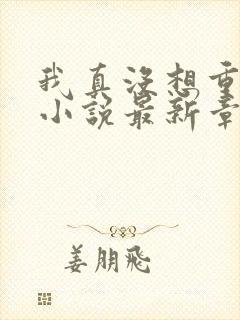 我真没想重
小说最新章
姜朋飛